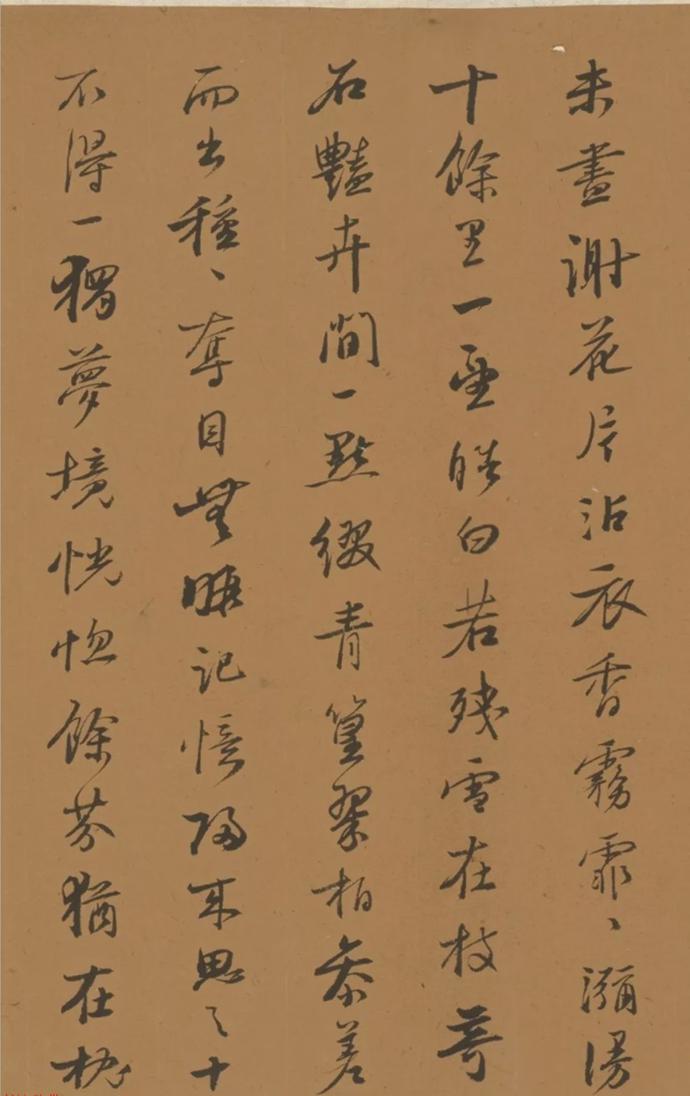 未盡謝花片沾衣香霧霏〻瀰漫
十餘里一望皓白若殘雪在枝奇
石豔卉間一點綴青篁翠柏參差
而出種〻奪目無暇記憶歸來思之十
不得一獨夢境恍惚餘芬猶在枕